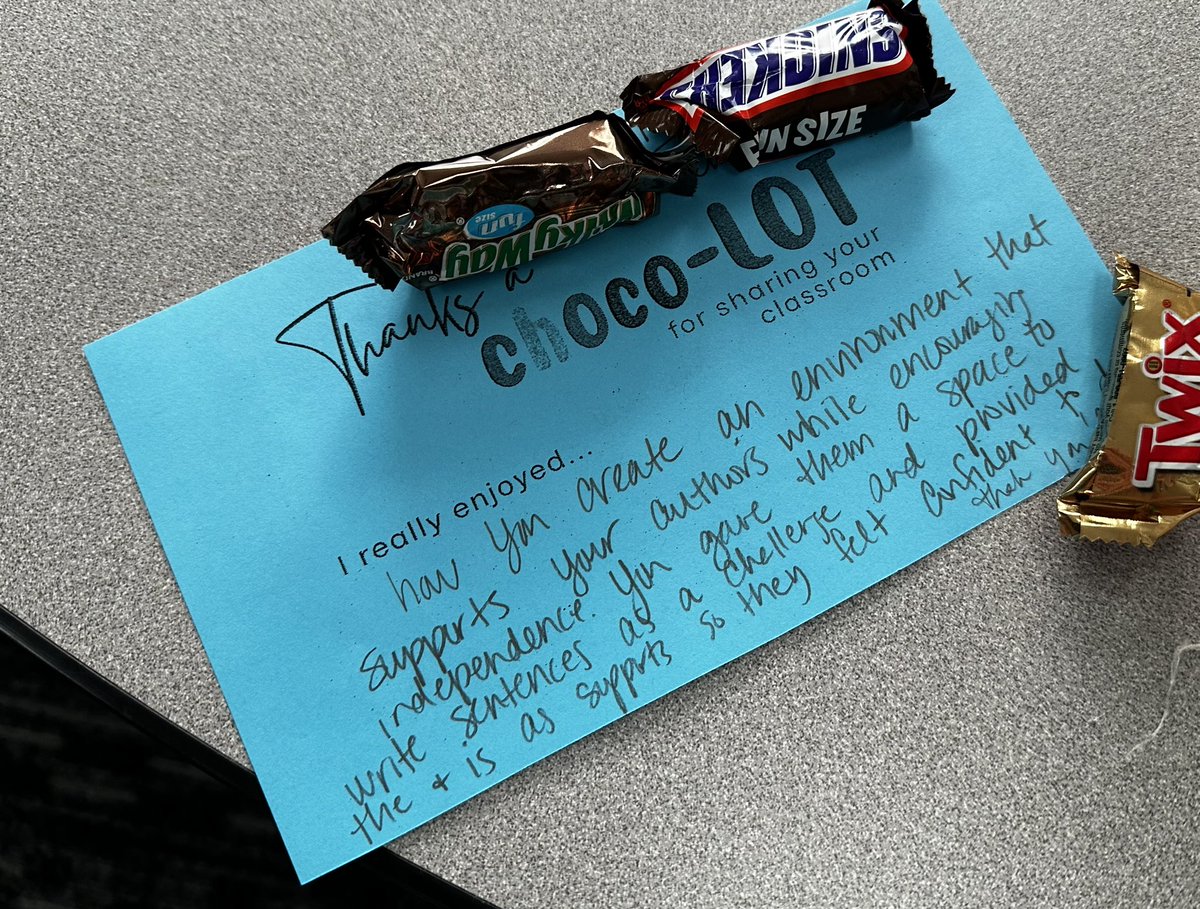 SNICKERS
FUN SIZE
Milky Way
BRAND
fun
SIZE
TWIX
Thanks a
choco-LOT
for sharing your
classroom
I really enjoyed...
how you create an environment that
supports your authors while encouraging
independence. You gave them a space to
write sentences as a challenge and provided
the + is as supports so they felt confident to